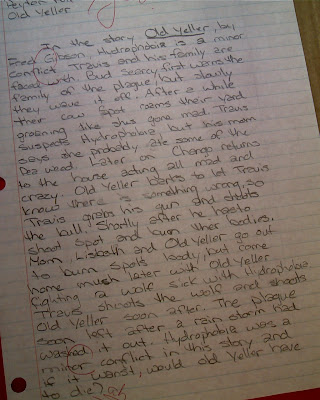 Old Yeller
In the story Old Yeller, by,
Fred Gibson, Hydrophobia is a minor
conflict Travis and his family are
faced with. Bud Searcy first warns the
family of the plague, but slowly
they wave it off. After a while
their cow Spot roams their yard
groaning like shes gone mad. Travis
suspects Hydrophobia, but his mom
says she probably ate some of the
Pea weed. Later on Chongo returns
to the house acting all mad and
crazy. Old Yeller barks to let Travis
know there is something wrong, so
Travis grabs his gun and shoots
the bull. Shortly after he has to
shoot Spot and burn their bodies.
Mom, Lisbeth and Old Yeller go out
to burn Spots body, but come
home much later with Old Yeller
fighting a wolf sick with Hidrophobia.
Travis shoots the wolf and shoots
Old Yeller soon after. The plaque
soon left after a rain storm had
washed it out. Hydrophobia was a
minor conflict in this story and
if it wanst, would old Yeller have
to die?